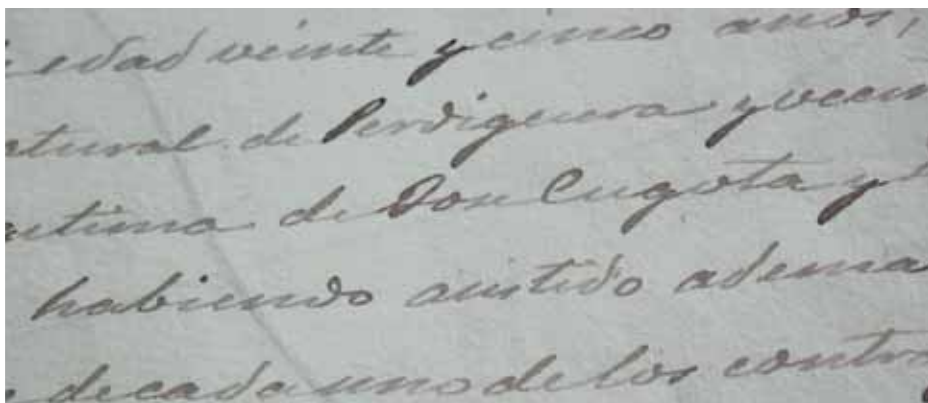 edad veinte y cinco años,
atural de Perdiguera y vecin
de Don
habiendo asistido adema
de cada uno de los contra